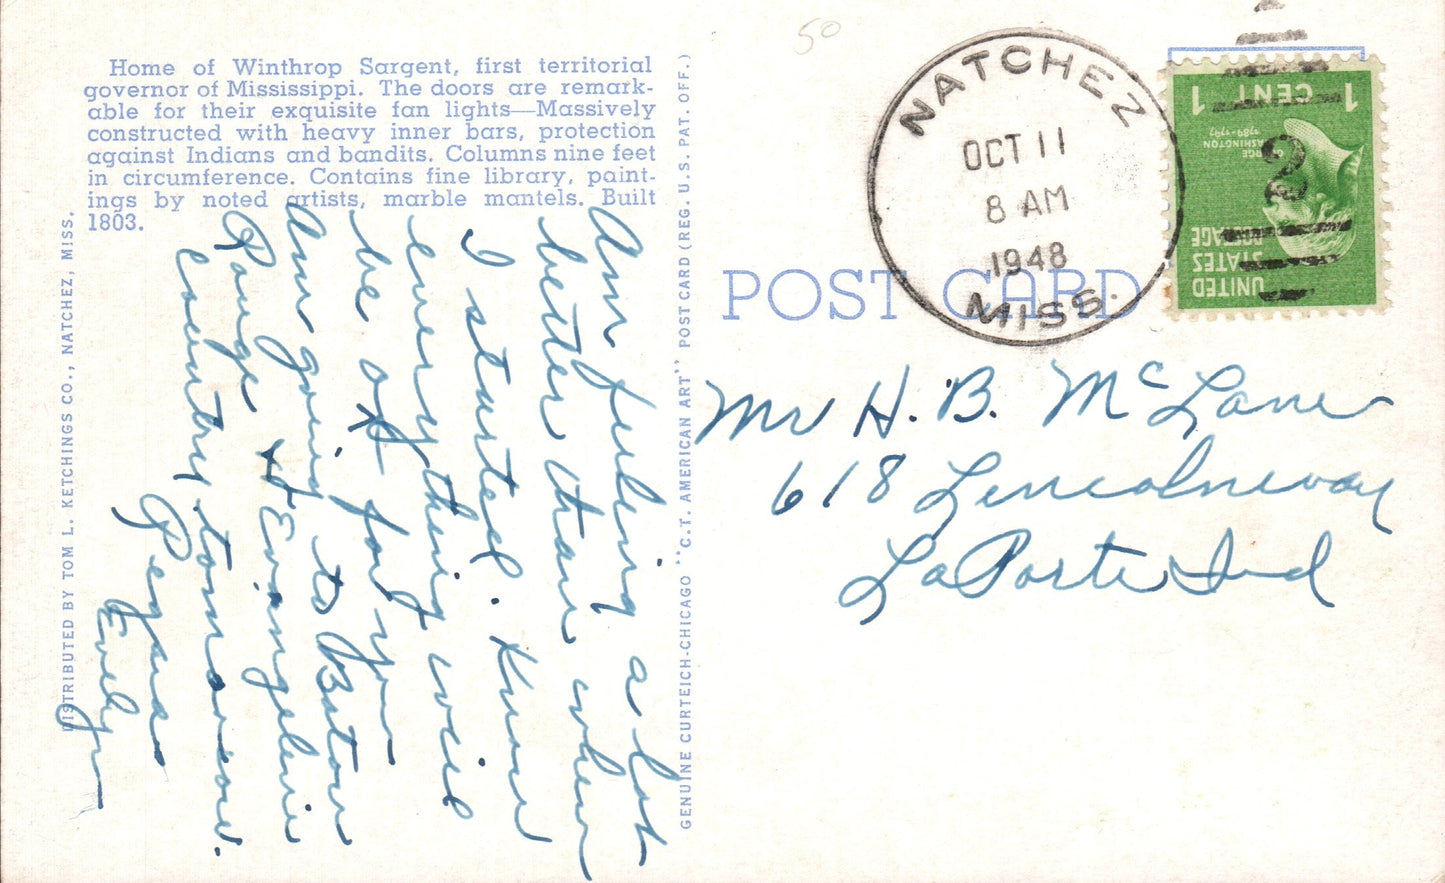 50
Home of Winthrop Sargent, first territorial
governor of Mississippi. The doors are remark-
able for their exquisite fan lights—Massively
constructed with heavy inner bars, protection
against Indians and bandits. Columns nine feet
in circumference. Contains fine library, paint-
ings by noted artists, marble mantels. Built
1803.
DISTRIBUTED BY TOM L. KETCHINGS CO., NATCHEZ, MISS.
Am feeling a lot
better than when
I started. Know
everything will
be ok for you
Am going to Baton
Rouge & Evangeline
country tomorrow.
Regards
Evelyn
GENUINE CURTEICH-CHICAGO "C.T. AMERICAN ART" POST CARD (REG. U.S. PAT. OFF.)
POST CARD
NATCHEZ
OCT 11
8 AM
1948
MISS.
2
UNITED
STATES
POSTAGE
GEORGE
WASHINGTON
1789-1797
1 CENT 1
Mr H. B. McLane
618 Lincolnway
LaPorte Ind